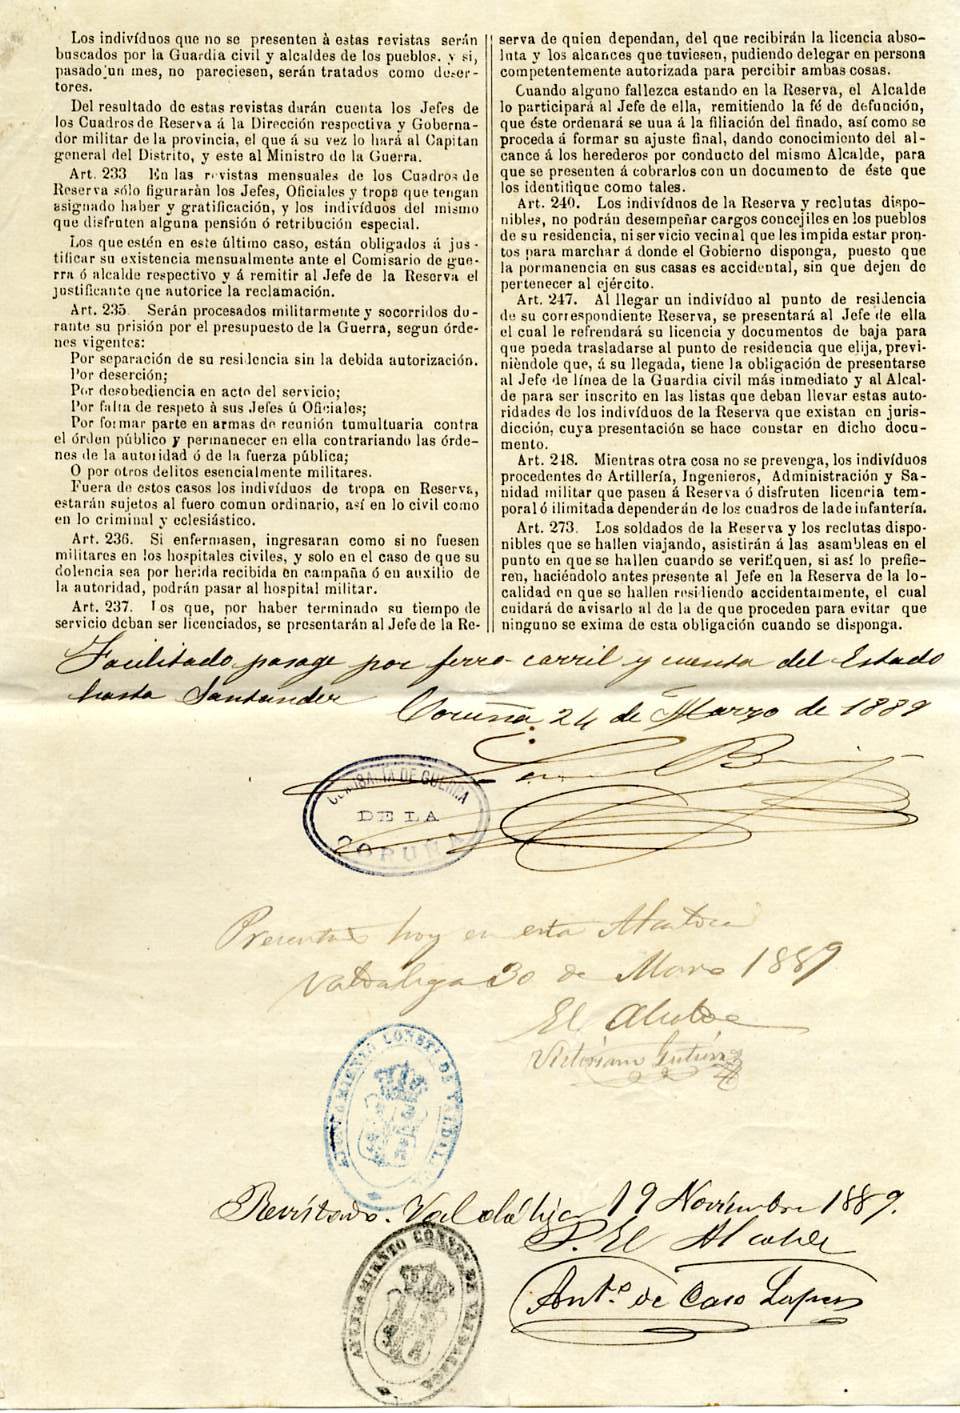 Los indivíduos que no se presenten á estas revistas serán
buscados por la Guardia civil y alcaldes de los pueblos. y si,
pasado un mes, no pareciesen, serán tratados como deser-
tores.
Del resultado de estas revistas darán cuenta los Jefes de
los Cuadros de Reserva á la Dirección respectiva y Goberna-
dor militar de la provincia, el que á su vez lo hará al Capitan
general del Distrito, y este al Ministro de la Guerra.
Art. 233 En las revistas mensuales de los Cuadros de
Reserva sólo figuraràn los Jefes, Oficiales y tropa que tengan
asignado haber y gratificación, y los indivíduos del mismo
que disfruten alguna pensión ó retribución especial.
Los que estén en este último caso, están obligados á jus-
tificar su existencia mensualmente ante el Comisario de gue-
rra ó alcalde respectivo y á remitir al Jefe de la Reserva el
justificante que autorice la reclamación.
Art. 235. Serán procesados militarmente y socorridos du-
rante su prisión por el presupuesto de la Guerra, segun órde-
nes vigentes:
Por separación de su residencia sin la debida autorización.
Por deserción;
Por desobediencia en acto del servicio;
Por falta de respeto á sus Jefes ú Oficiales;
Por formar parte en armas de reunión tumultuaria contra
el órden público y permanecer en ella contrariando las órde-
nes de la autoridad ó de la fuerza pública;
O por otros delitos esencialmente militares.
Fuera de estos casos los indivíduos de tropa en Reserva,
estarán sujetos al fuero comun ordinario, así en lo civil como
en lo criminal y eclesiástico.
Art. 236. Si enfermasen, ingresaran como si no fuesen
militares en los hospitales civiles, y solo en el caso de que su
dolencia sea por herida recibida en campaña ó en auxilio de
la autoridad, podrán pasar al hospital militar.
Art. 237. Los que, por haber terminado su tiempo de
servicio deban ser licenciados, se presentarán al Jefe de la Re-
serva de quien dependan, del que recibirán la licencia abso-
luta y los alcances que tuviesen, pudiendo delegar en persona
competentemente autorizada para percibir ambas cosas.
Cuando alguno fallezca estando en la Reserva, el Alcalde
lo participará al Jefe de ella, remitiendo la fé de defunción,
que éste ordenará se una á la filiación del finado, así como se
proceda á formar su ajuste final, dando conocimiento del al-
cance á los herederos por conducto del mismo Alcalde, para
que se presenten á cobrarlos con un documento de éste que
los identifique como tales.
Art. 240. Los indivíduos de la Reserva y reclutas dispo-
nibles, no podrán desempeñar cargos concejiles en los pueblos
de su residencia, ni servicio vecinal que les impida estar pron-
tos para marchar á donde el Gobierno disponga, puesto que
la permanencia en sus casas es accidental, sin que dejen de
pertenecer al ejército.
Art. 247. Al llegar un indivíduo al punto de residencia
de su correspondiente Reserva, se presentará al Jefe de ella
el cual le refrendará su licencia y documentos de baja para
que pueda trasladarse al punto de residencia que elija, previ-
niéndole que, á su llegada, tiene la obligación de presentarse
al Jefe de línea de la Guardia civil más inmediato y al Alcal-
de para ser inscrito en las listas que deban llevar estas auto-
ridades de los indivíduos de la Reserva que existan en juris-
dicción, cuya presentación se hace constar en dicho docu-
mento.
Art. 248. Mientras otra cosa no se prevenga, los indivíduos
procedentes de Artillería, Ingenieros, Administración y Sa-
nidad militar que pasen á Reserva ó disfruten licencia tem-
poral ó ilimitada dependerán de los cuadros de la de infantería.
Art. 273. Los soldados de la Reserva y los reclutas dispo-
nibles que se hallen viajando, asistirán á las asambleas en el
punto en que se hallen cuando se verifiquen, si así lo prefie-
ren, haciéndolo antes presente al Jefe en la Reserva de la lo-
calidad en que se hallen residiendo accidentalmente, el cual
cuidará de avisarlo al de la de que proceden para evitar que
ninguno se exima de esta obligación cuando se disponga.
Facilitado pasage por ferro-carril y cuenta del Estado
hasta Santander
Coruña 24 de Marzo de 1889
COMISARIA DE GUERRA
DE LA
CORUÑA
Presentado hoy en esta Alcaldia
Valdaliga 30 de Marzo 1889
El Alcalde
Victoriano Gutierrez
AYUNTAMIENTO CONSTL. DE VALDALIGA
Revistado. Valdáliga 19 Noviembre 1889.
P. El Alcalde
Ant.º de Caso Lopez
AYUNTAMIENTO CONSTL. DE VALDALIGA